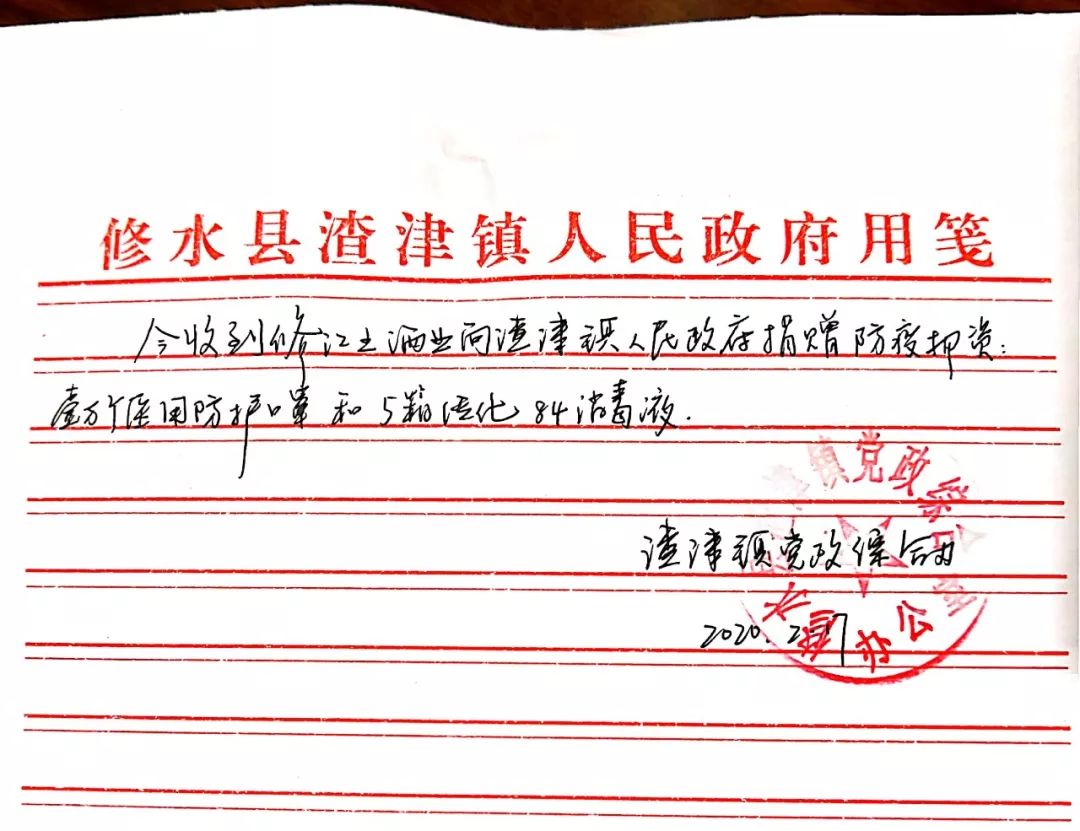 修水县渣津镇人民政府用笺
今收到修江土酒业向渣津镇人民政府捐赠防疫物资:
壹万个医用防护口罩和5箱洁化84消毒液.
渣津镇党政综合办
2020.2.17
镇党政综合办公